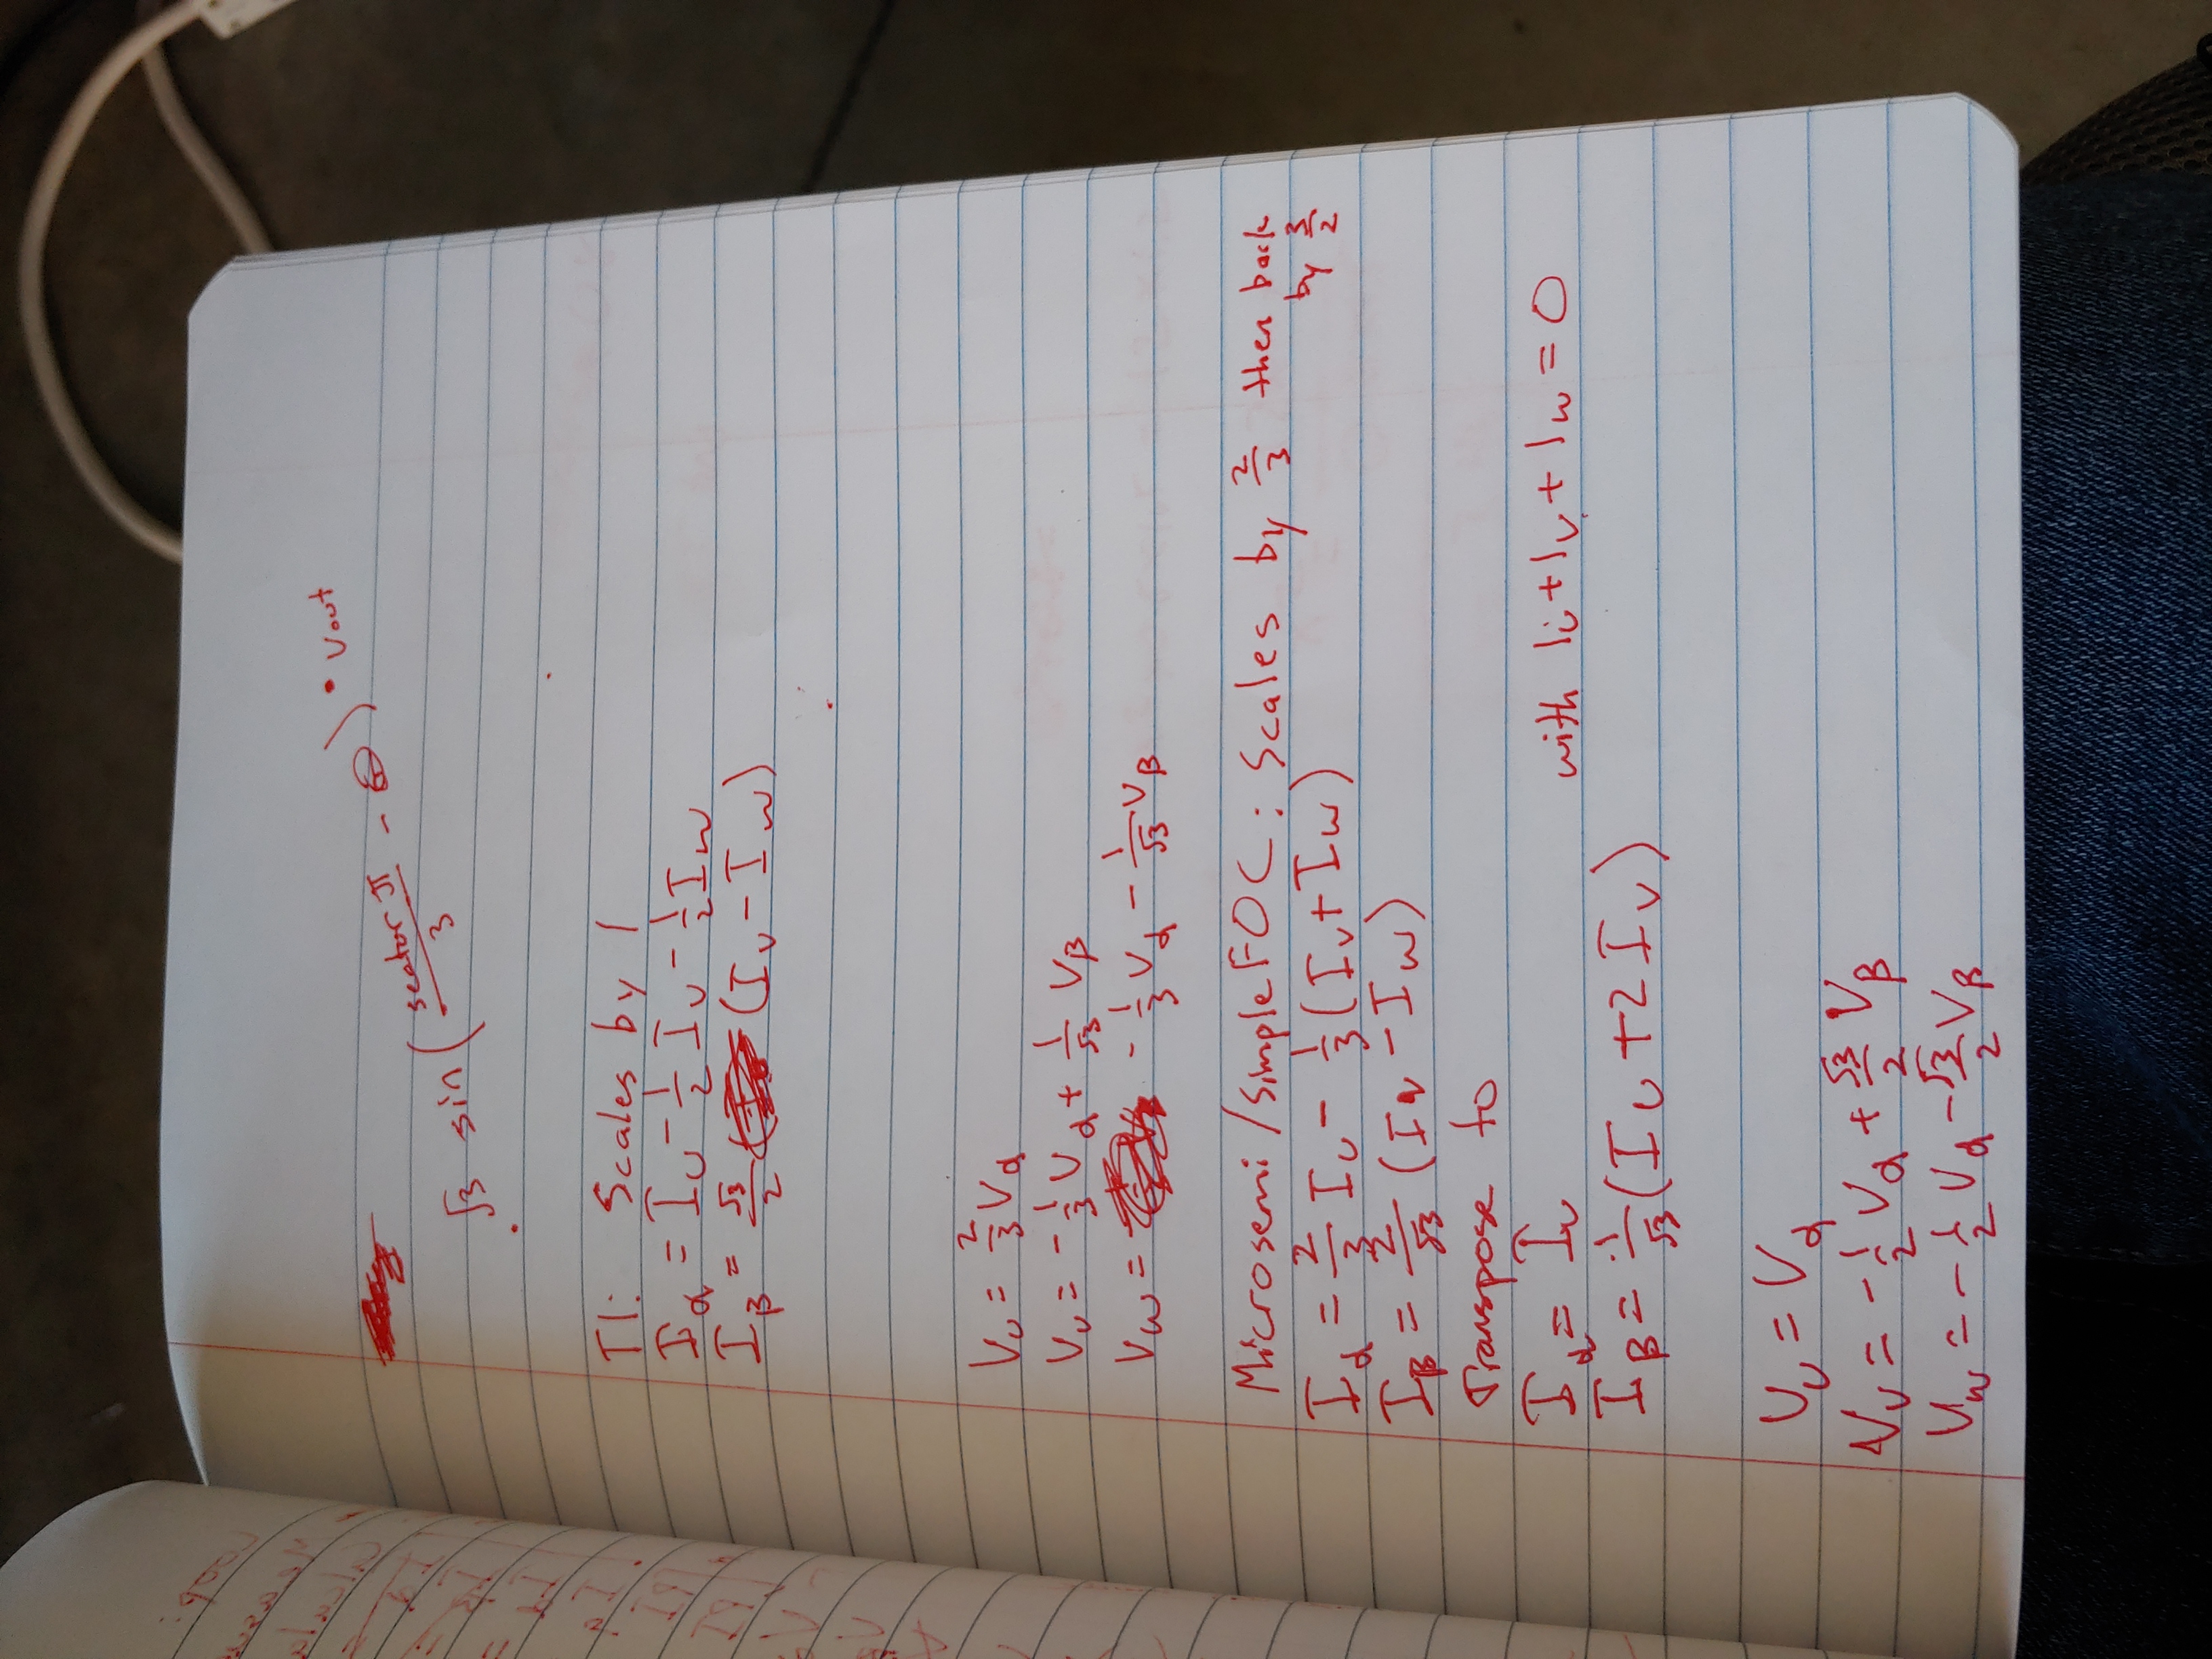 √3 sin( sector π / 3 - Θ ) • Vout
TI: Scales by 1
I_α = I_U - 1/2 I_V - 1/2 I_W
I_β = √3/2 (I_V - I_W)
V_U = 2/3 V_α
V_V = - 1/3 V_α + 1/√3 V_β
V_W = - 1/3 V_α - 1/√3 V_β
Microsemi/SimpleFOC: Scales by 2/3 then back
by 3/2
I_α = 2/3 I_U - 1/3 (I_V + I_W)
I_β = 2/√3 (I_V - I_W)
Transpose to
I_α = I_U with I_U + I_V + I_W = 0
I_β = 1/√3 (I_U + 2 I_V)
V_U = V_α
V_V = - 1/2 V_α + √3/2 V_β
V_W = - 1/2 V_α - √3/2 V_β